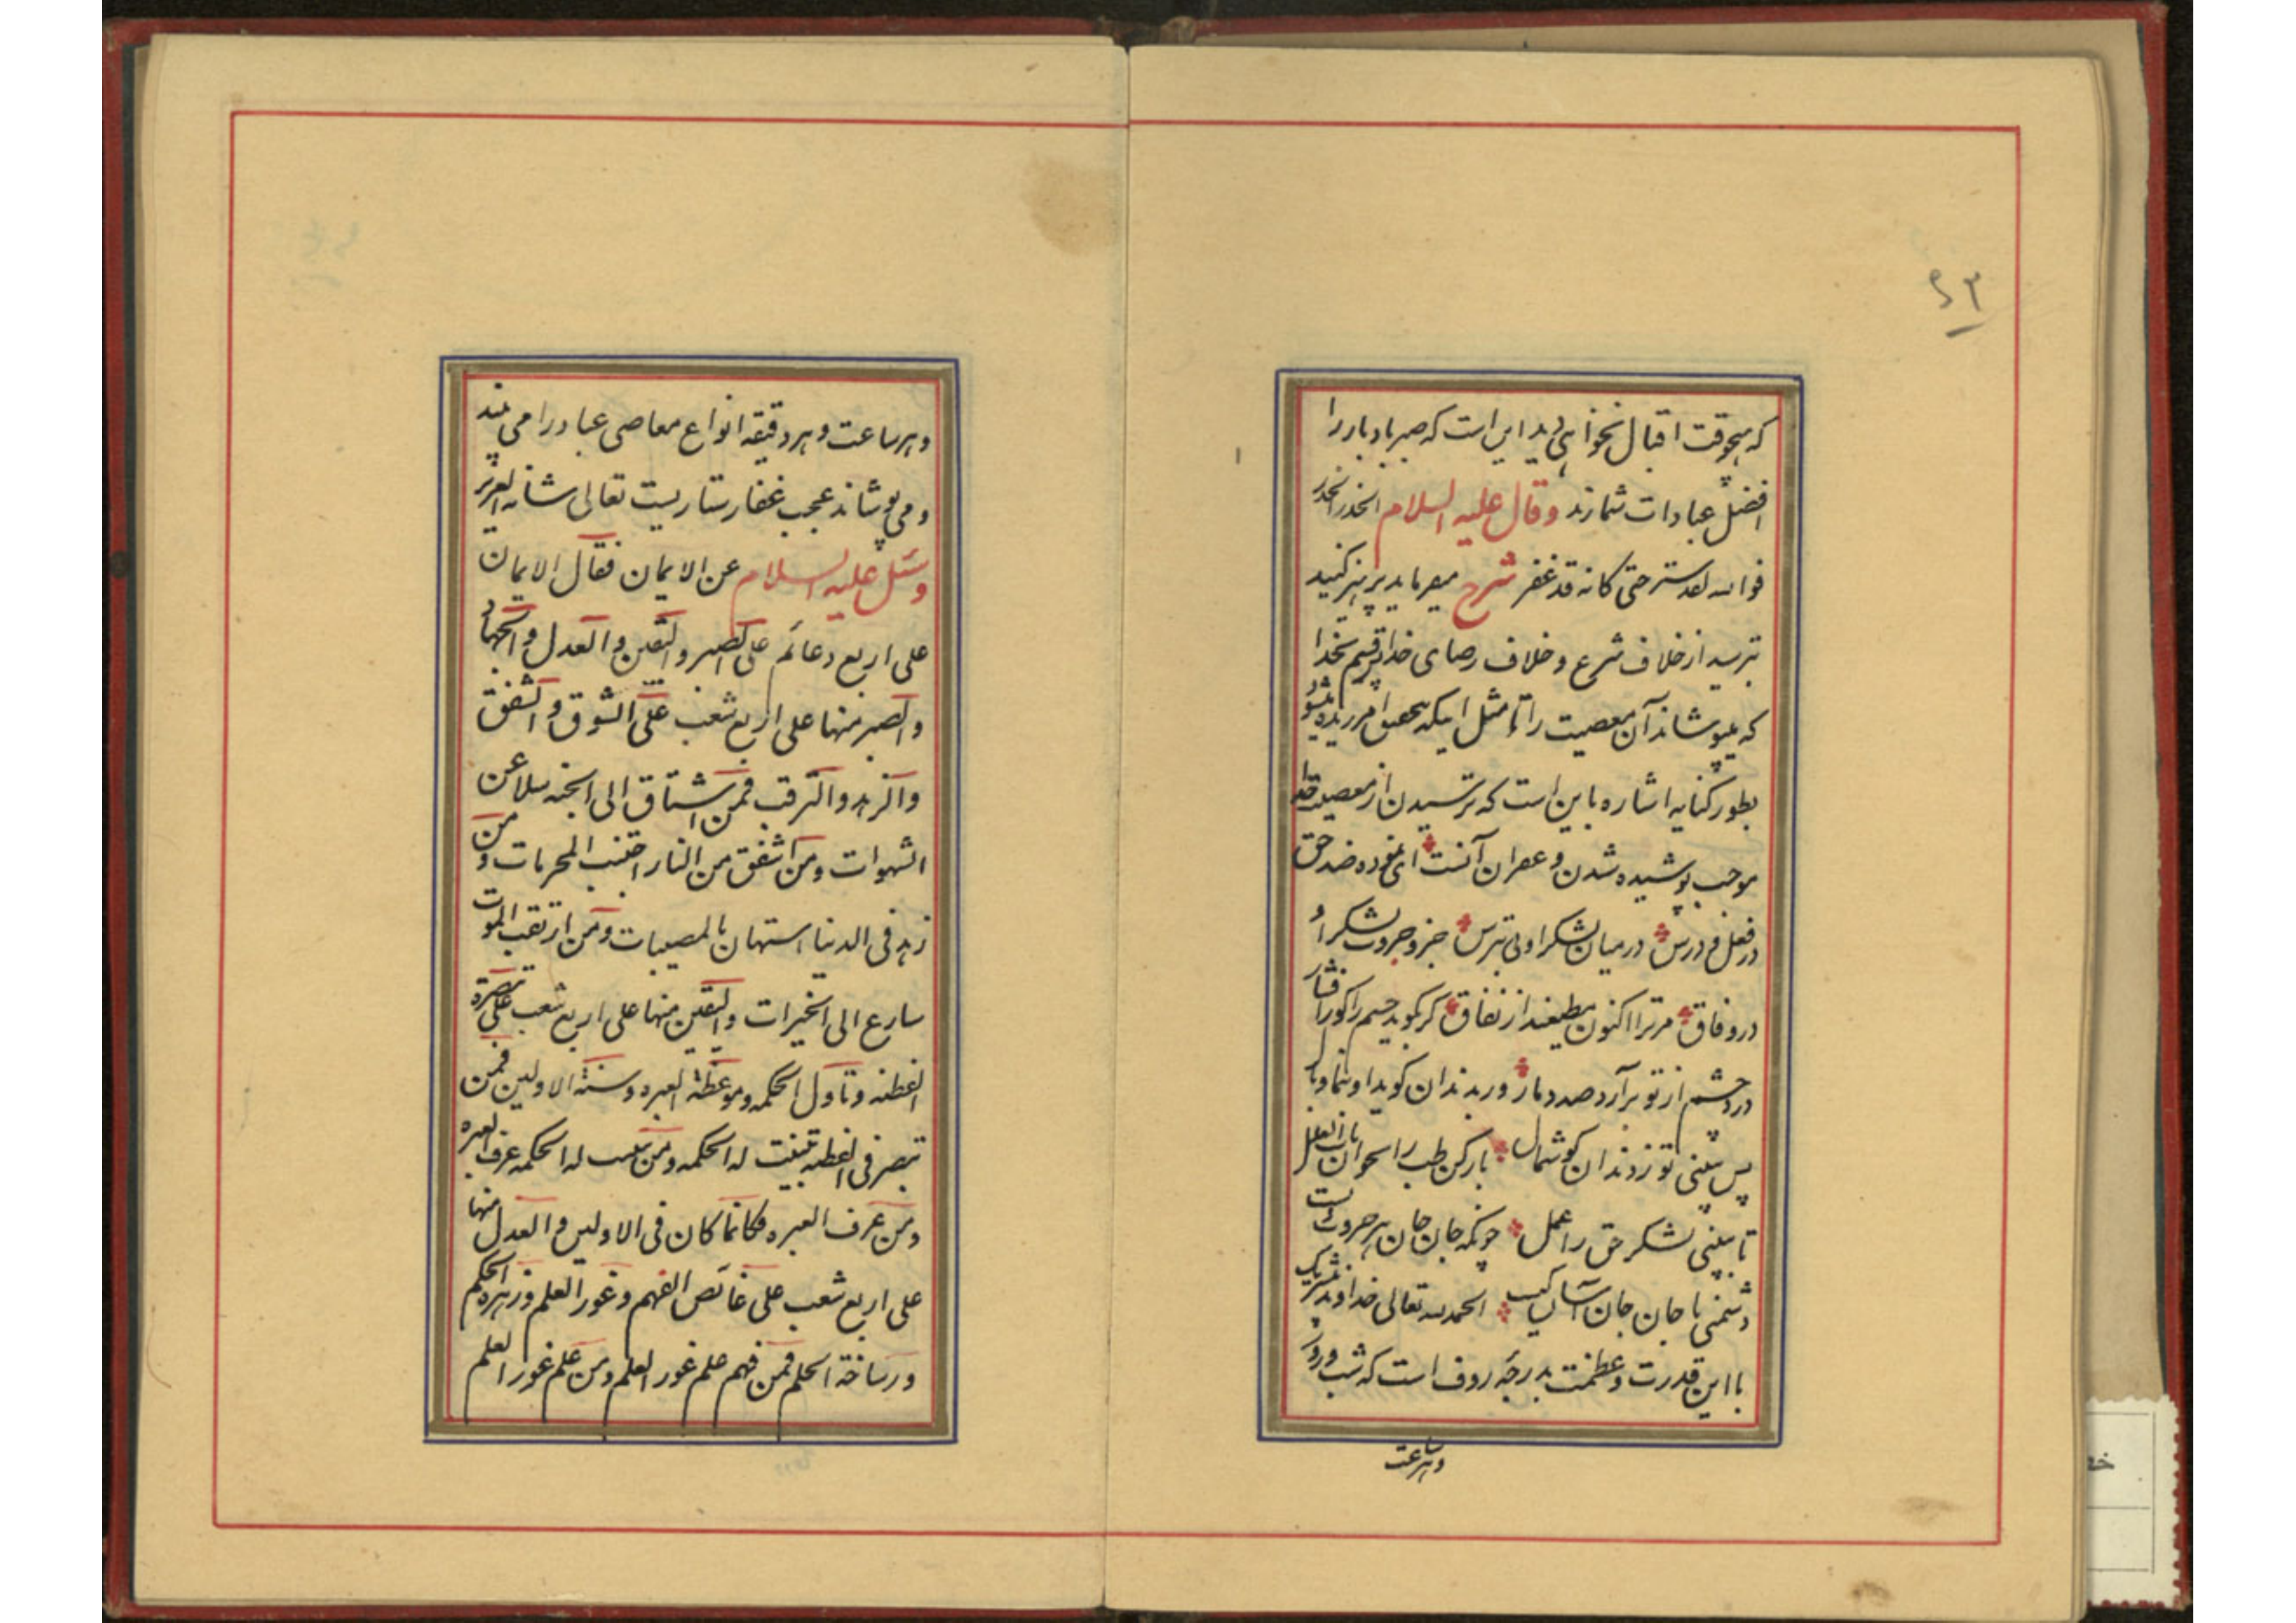 ۲۳
که هیچوقت اقبال نخواهی دید این است که صبر با دبار را
افضل عبادات شمارند وقال علیه السلام الحذر الحذر
فوالله لقد ستر حتی کانه قد غفر شرح میفرماید بپرهیز کنید
بترسید از خلاف شرع و خلاف رضای خدا پس قسم بخدا
که میپوشاند آن معصیت را تا مثل اینکه بتحقیق امرزیده میشو
بطور کنایه اشاره باین است که ترسیدن از معصیت خدا
موجب پوشیده شدن و غفران آنست ای نموده ضد حق
در فعل و درس در میان لشکر اوئی بترس جزو جزوت لشکر او
در وفاق مر ترا اکنون مطیعند از نفاق گر بگوید چشم را کورا فشار
درد چشم از تو برآرد صد دمار ور بدندان گوید او بنما وبال
پس ببینی تو ز دندان گوشمال باز کن طب را بخوان باب العلل
تا ببینی لشکر حق را عمل چونکه جان جان هر چیزوی است
دشمنی با جان جان آسان کیست الحمد لله تعالی خداوند شریک
با این قدرت و عظمت بدرجه رؤف است که شب و روز
و هر ساعت
و هر ساعت و هر دقیقه انواع معاصی عباد را می بیند
و می پوشاند عجب غفار ستاریست تعالی شانه العزیز
وسئل علیه السلام عن الایمان فقال الایمان
علی اربع دعائم علی الصبر والیقین والعدل والجهاد
والصبر منها علی اربع شعب علی الشوق والشفق
والزهد والترقب فمن اشتاق الی الجنه سلا عن
الشهوات ومن اشفق من النار اجتنب المحرمات ومن
زهد فی الدنیا استهان بالمصیبات ومن ارتقب الموت
سارع الی الخیرات والیقین منها علی اربع شعب علی تبصرة
الفطنه وتاول الحکمه وموعظة العبره وسنة الاولین فمن
تبصر فی الفطنه تبینت له الحکمه ومن تبینت له الحکمه عرف العبره
ومن عرف العبره فکانما کان فی الاولین والعدل منها
علی اربع شعب علی غائص الفهم وغور العلم وزهره الحکم
ورساخة الحلم فمن فهم علم غور العلم ومن علم غور العلم